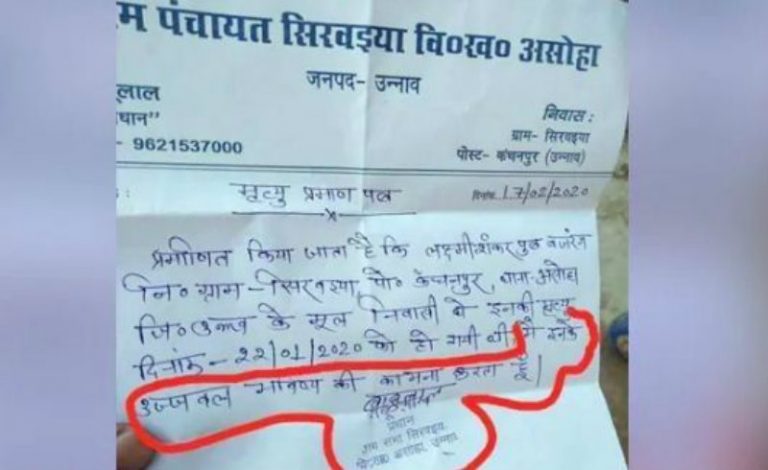 म पंचायत सिरवइया वि०ख० असोहा
जनपद- उन्नाव
ूलाल
धान"
- 9621537000
निवास :
ग्राम- सिरवइया
पोस्ट- कंचनपुर (उन्नाव)
मृत्यु प्रमाण पत्र
दिनांक 17/02/2020
प्रमाणित किया जाता है कि लक्ष्मीशंकर पुत्र बजरंग
नि० ग्राम- सिरवइया, पो० कंचनपुर, थाना-असोहा
जि० उन्नाव के मूल निवासी थे इनकी मृत्यु
दिनांक- 22/01/2020 को हो गयी थी मै इनके
उज्जवल भविष्य की कामना करता हूँ।
प्रधान
ग्राम सभा सिरवइया
वि०ख० असोहा, उन्नाव